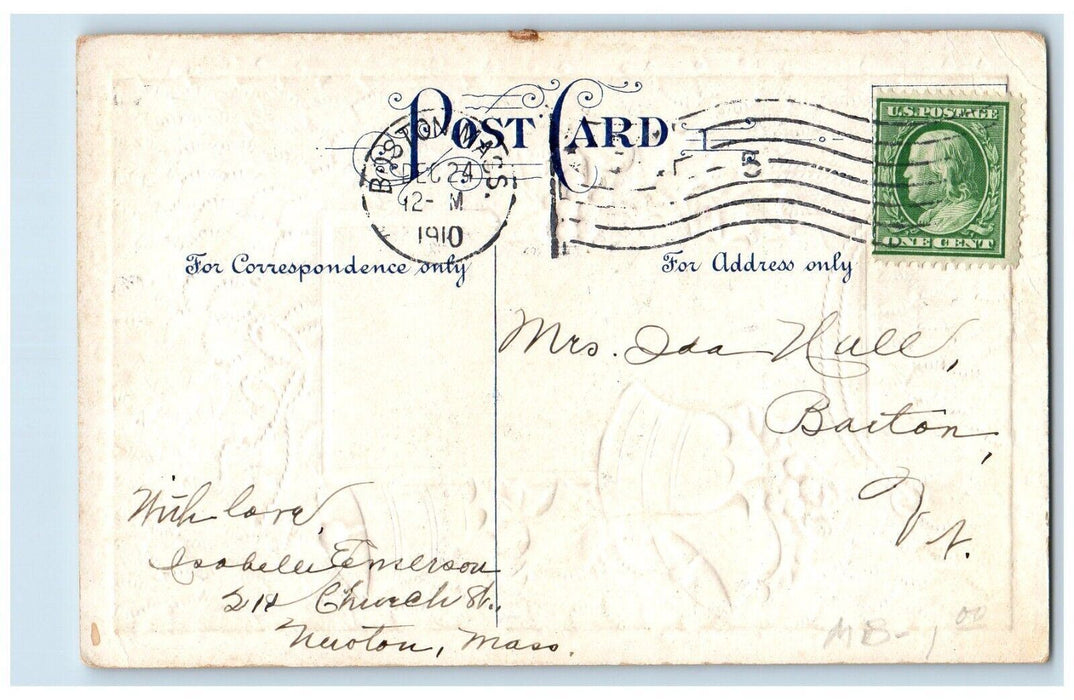 POST CARD
BOSTON, MASS.
DEC 24
12- M
1910
5
U.S. POSTAGE
ONE CENT
For Correspondence only
For Address only
Mrs. Ida Hall,
Barton,
Vt.
With love,
Isabelle Emerson
Church St.,
Newton, Mass.
MB-1 00